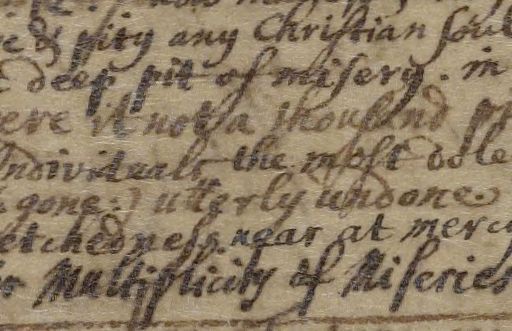 pity any Christian soul
deep pit of misery. in
ere it not a thousand
the most
gone:) utterly undone.
etchedness near at merc
Multiplicity of Miseries